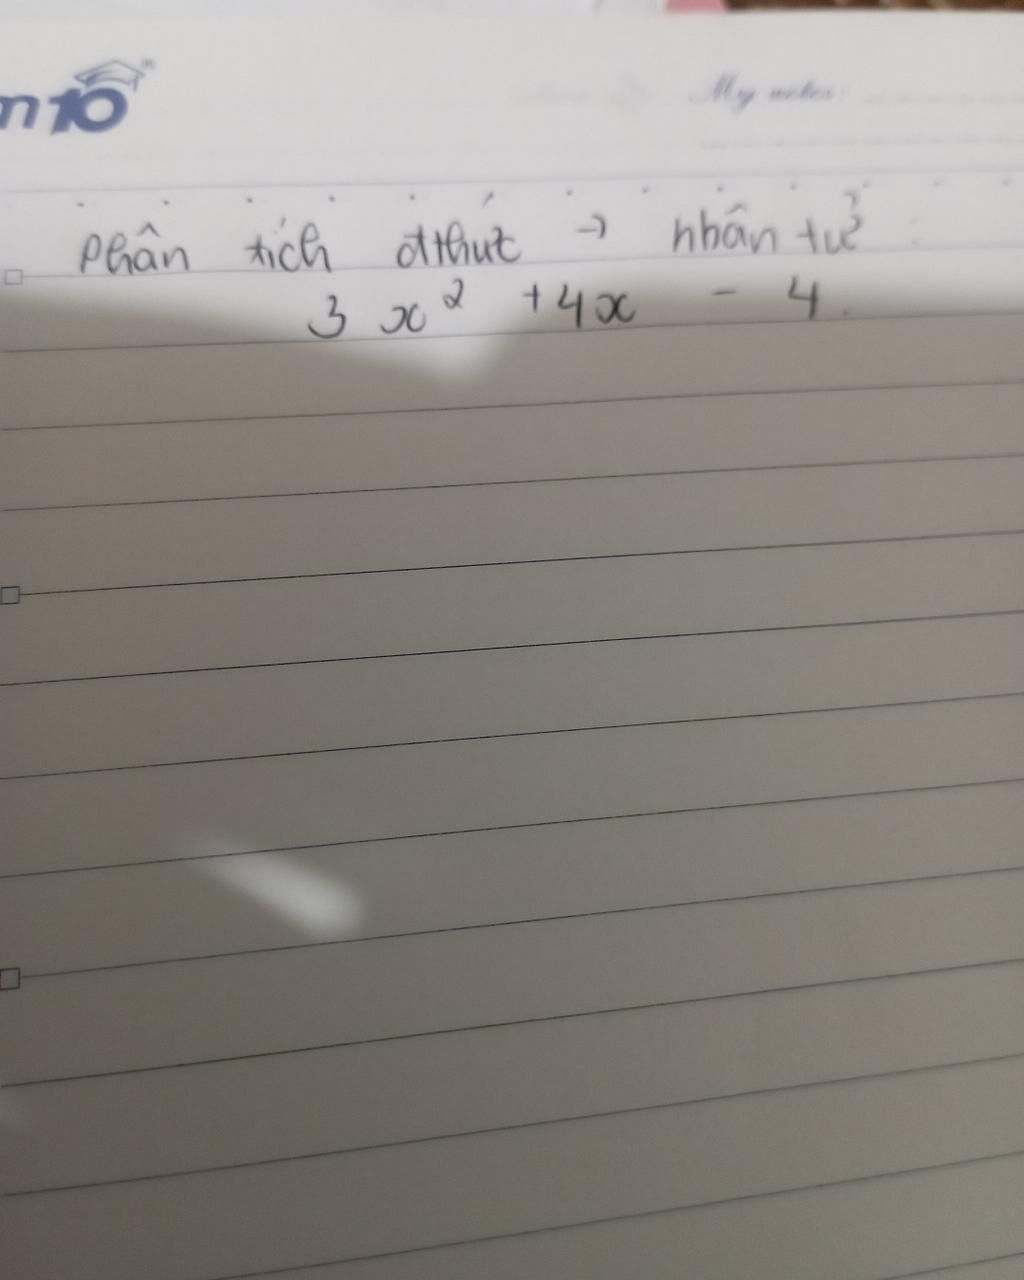 n10
My notes:
Phân tích đthức → nhân tử :
3x² + 4x - 4.